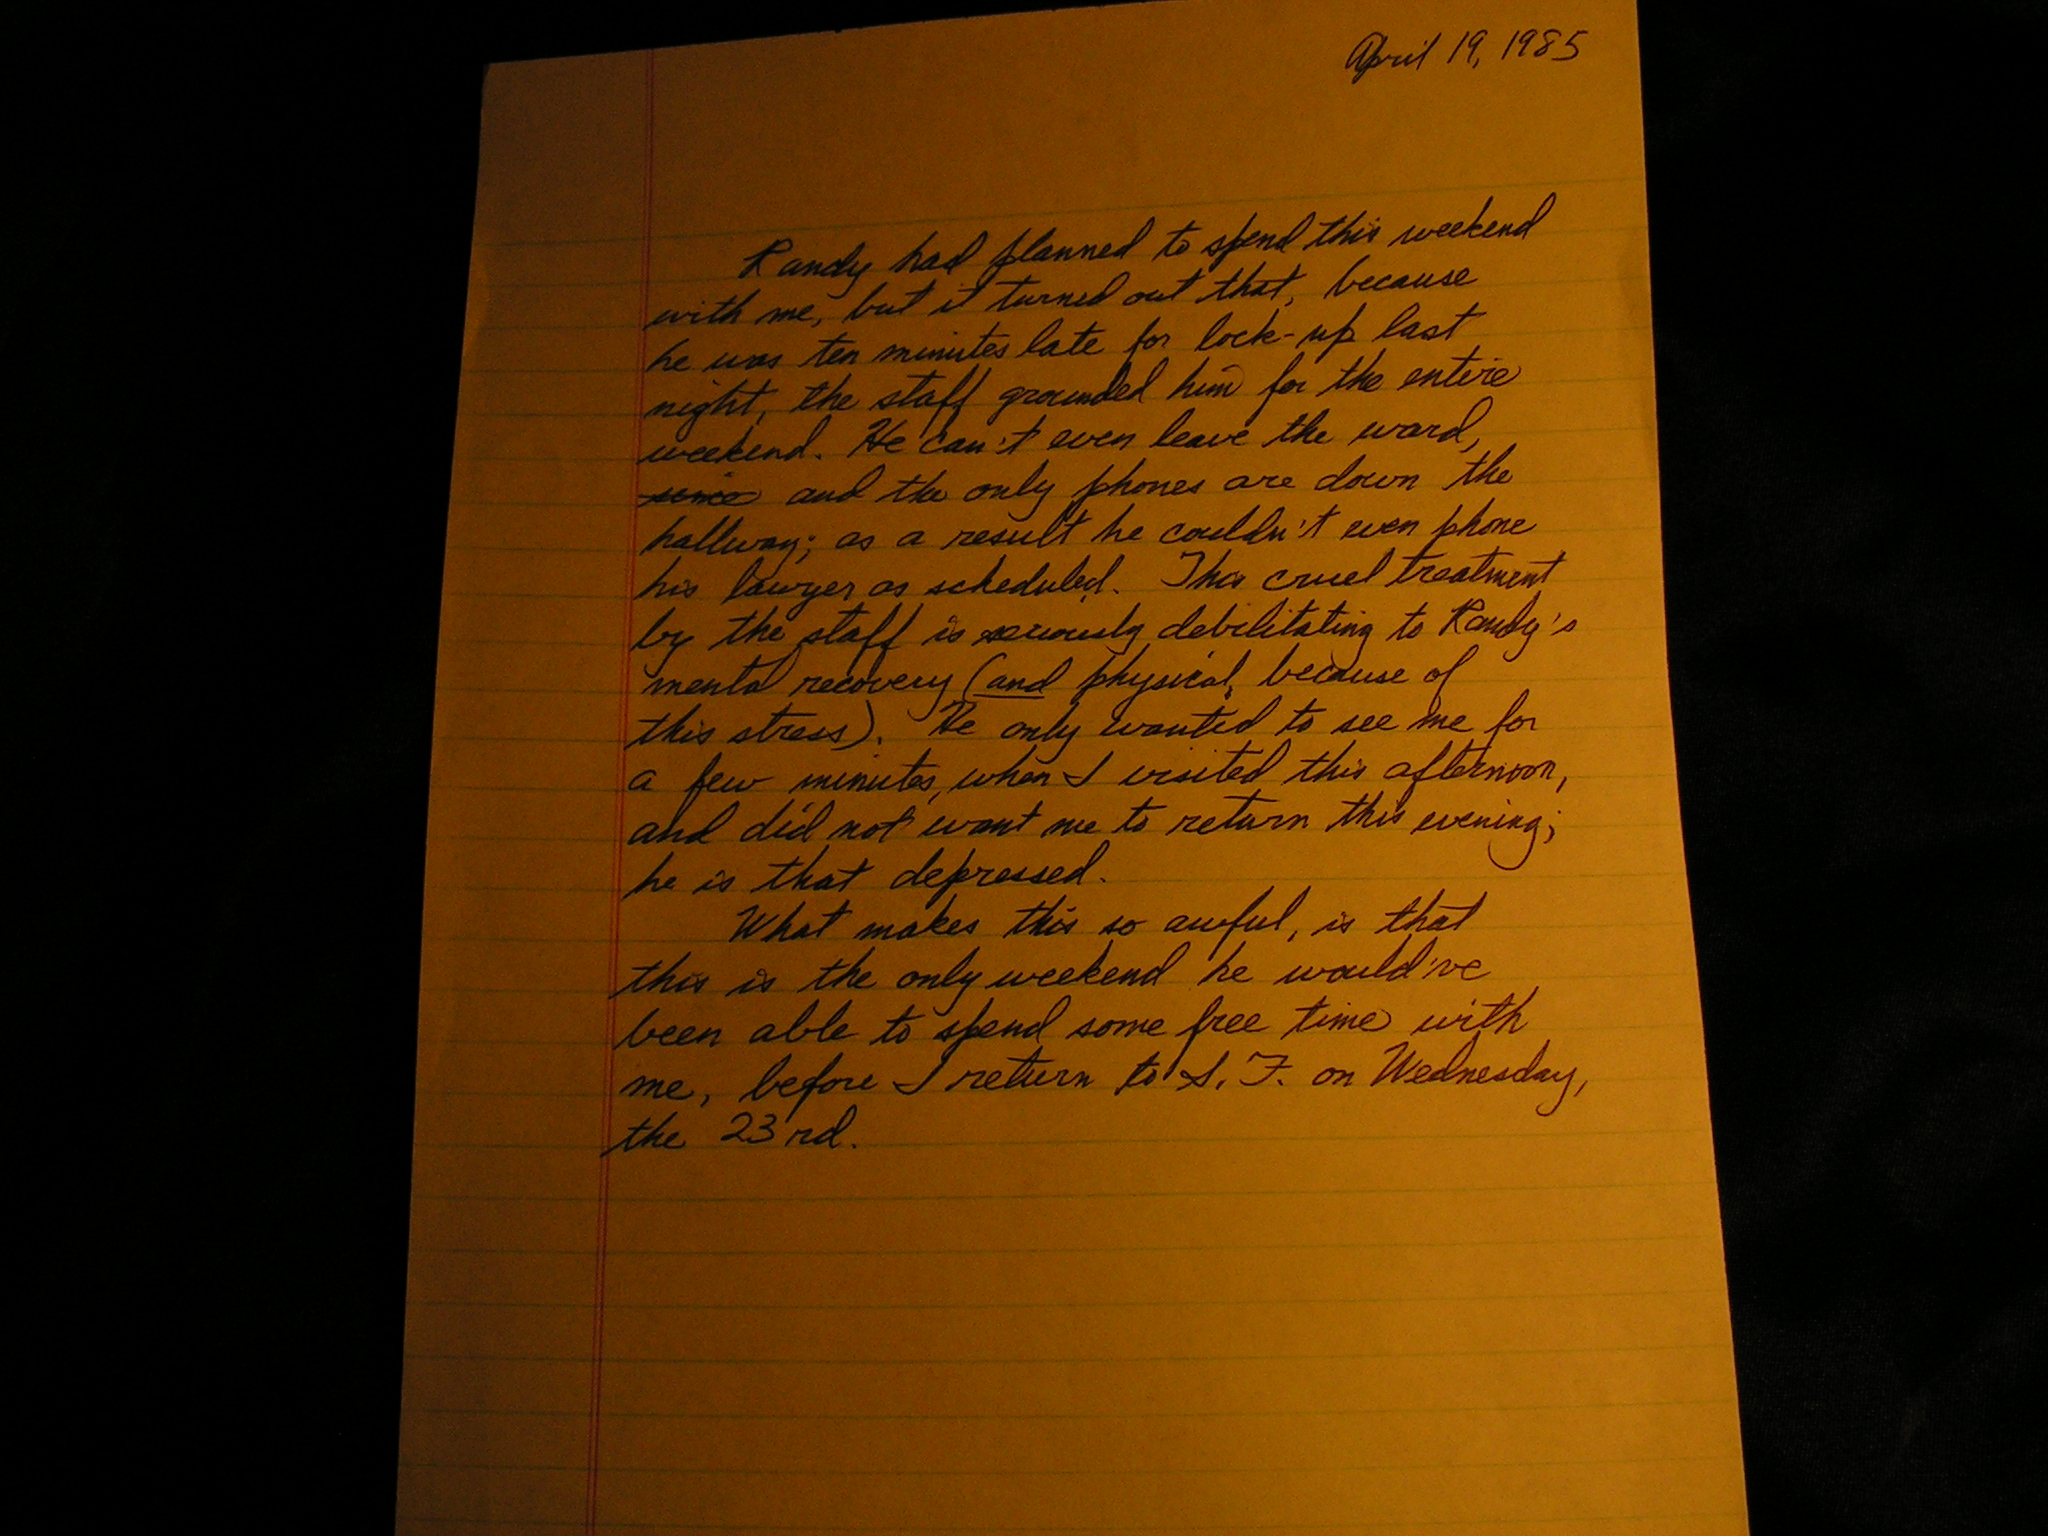 April 19, 1985
Randy had planned to spend this weekend
with me, but it turned out that, because
he was ten minutes late for lock-up last
night, the staff grounded him for the entire
weekend. He can't even leave the ward,
since and the only phones are down the
hallway; as a result he couldn't even phone
his lawyer as scheduled. This cruel treatment
by the staff is seriously debilitating to Randy's
mental recovery (and physical, because of
this stress). He only wanted to see me for
a few minutes, when I visited this afternoon,
and did not want me to return this evening;
he is that depressed.
What makes this so awful, is that
this is the only weekend he would've
been able to spend some free time with
me, before I return to S. F. on Wednesday,
the 23rd.